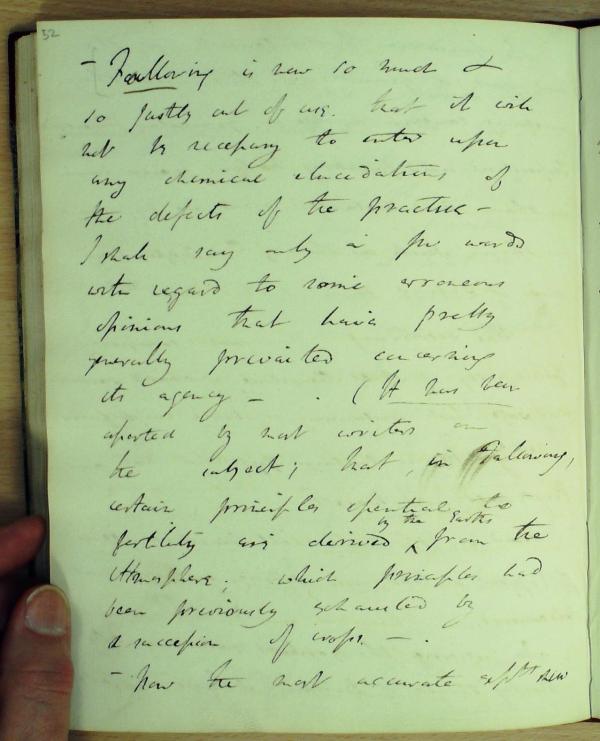 32
- Fallowing is now so much &
so justly out of use. that it will
not be necessary to enter upon
any chemical elucidations of
the defects of the practice -
I shall say only a few words
with regard to some erroneous
opinions that have pretty
generally prevailed concerning
its agency - . (It has been
asserted by most writers on
the subject; that, in Fallowing,
certain principles essential to
by the Earths
fertility are derived ^ from the
Atmosphere; which principles had
been previously exhausted by
a succession of crops. - .
- Now the most accurate expts shew